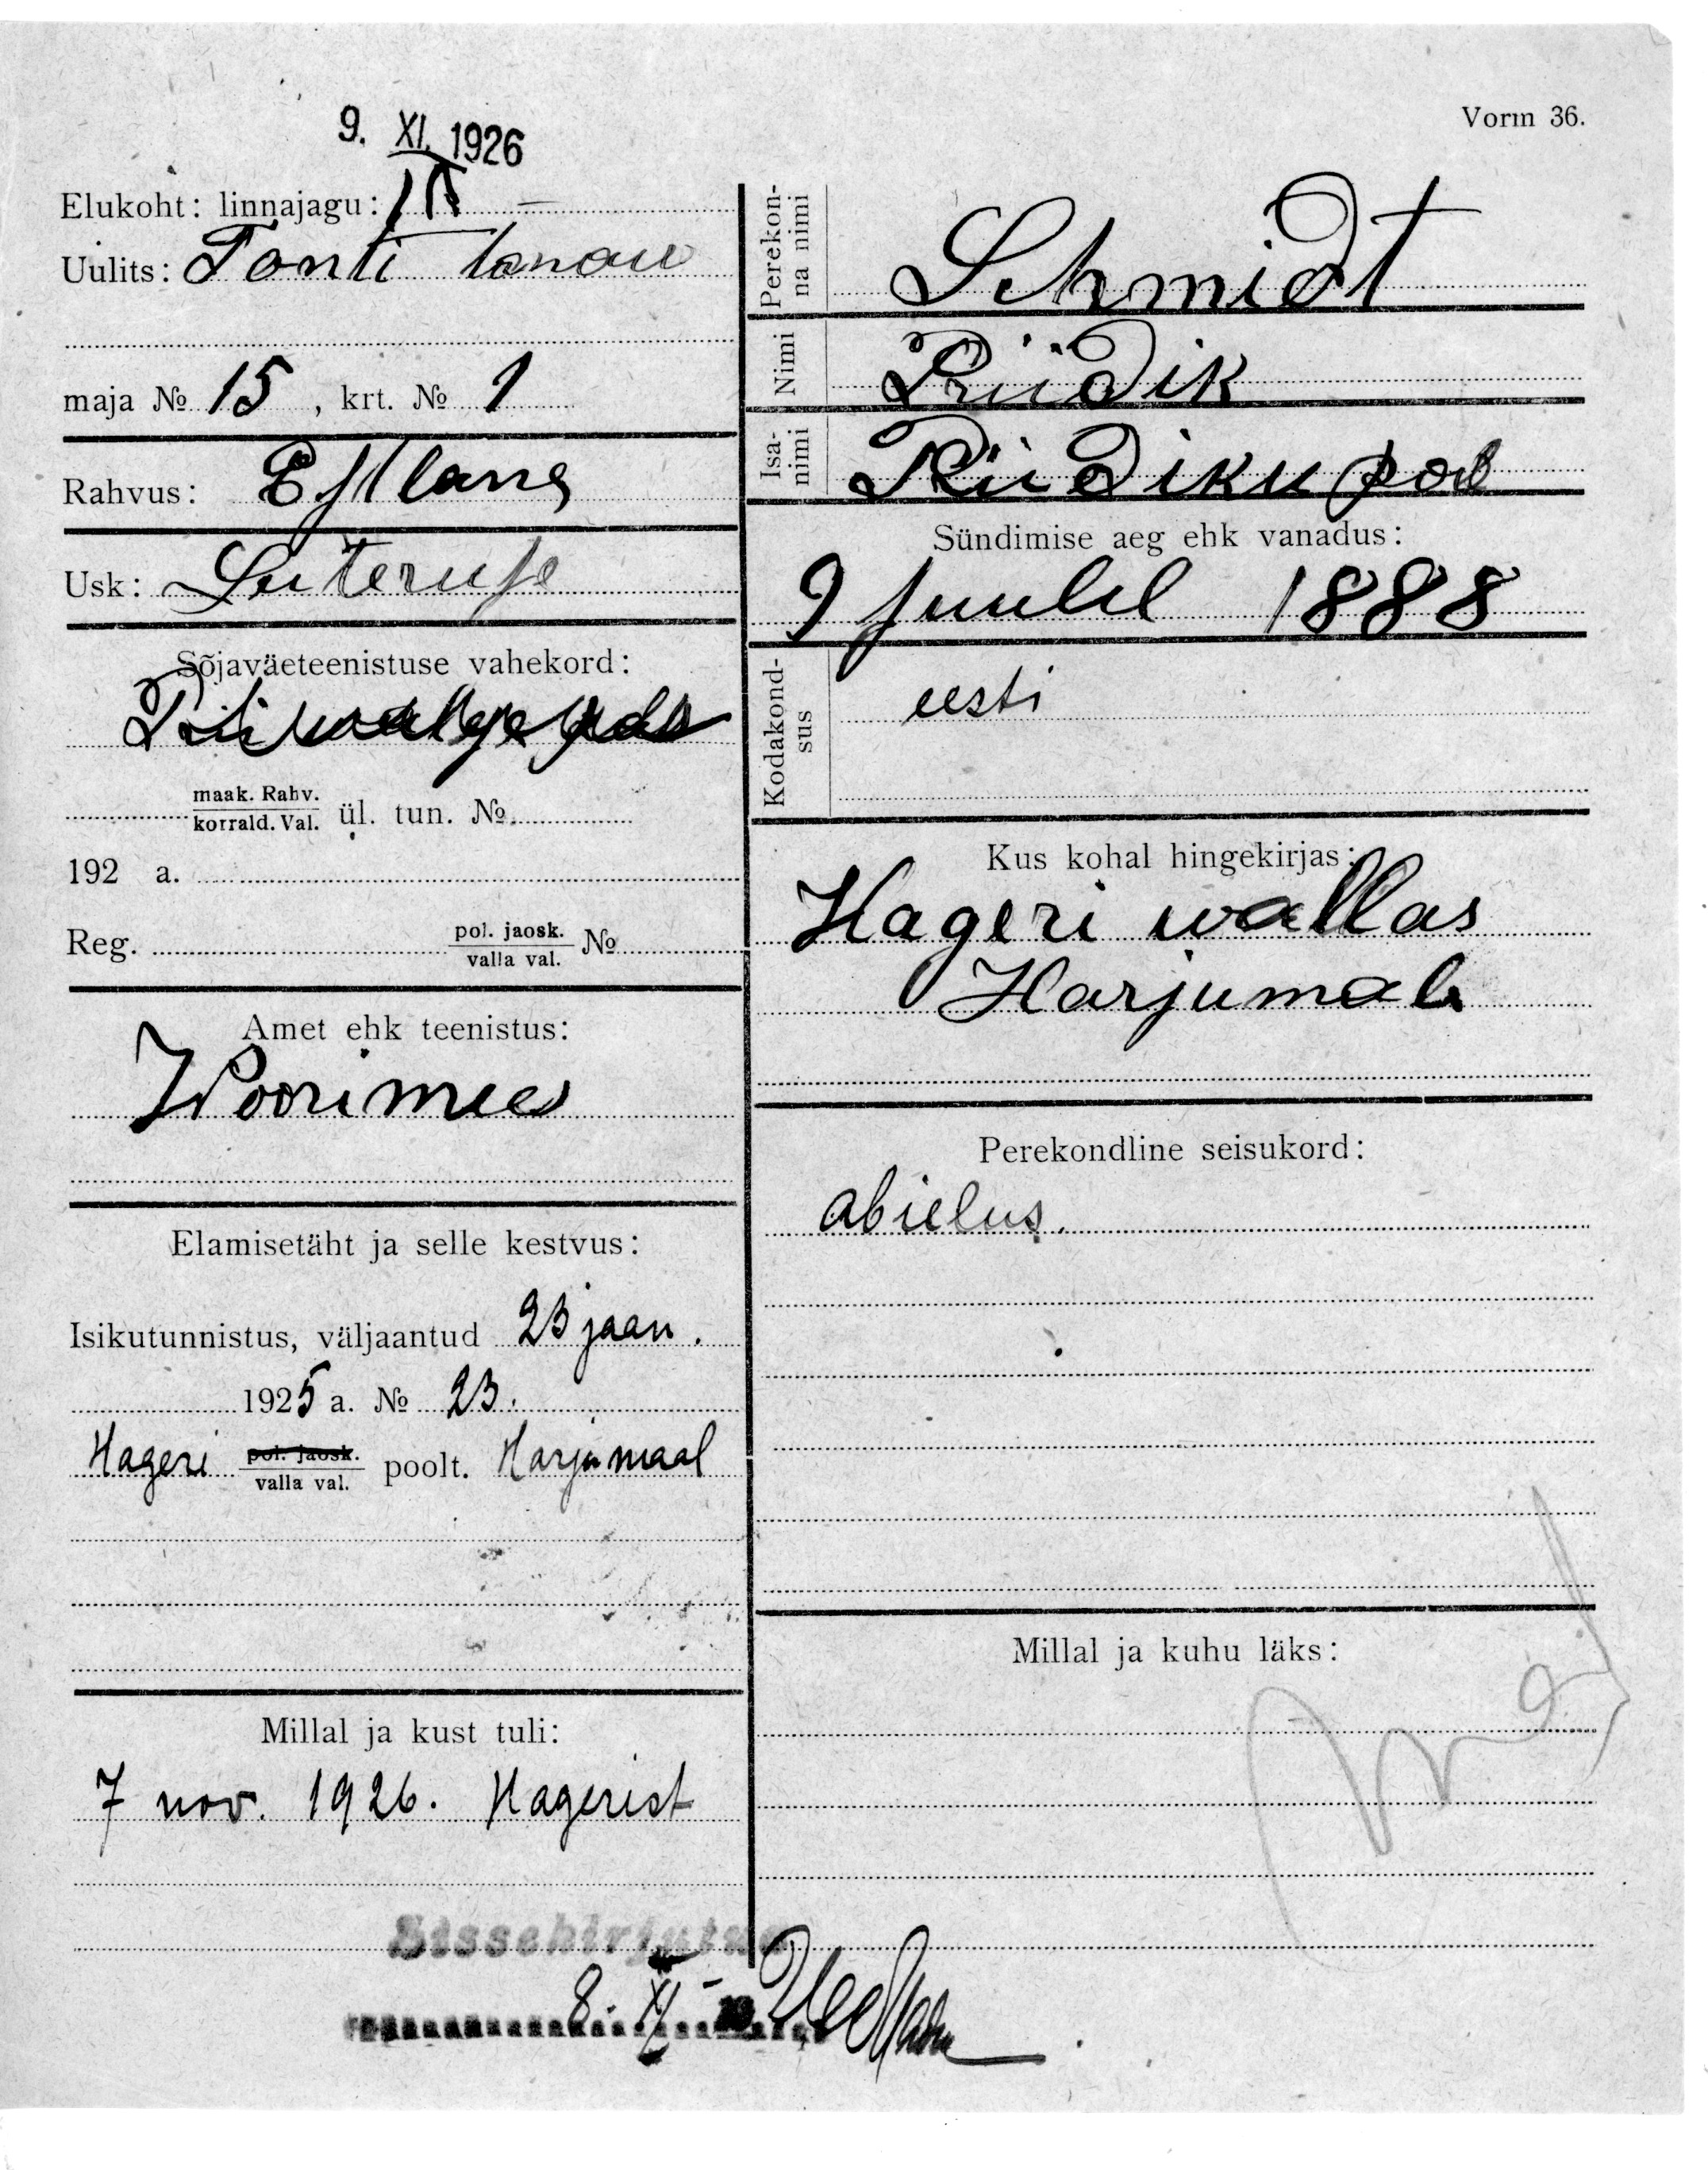 Vorm 36.
9. XI. 1926
Elukoht: linnajagu: II
Uulits: Tonti tanaw
maja № 15, krt. № 1
Rahvus: Estlane
Usk: Luteruse
Sõjaväeteenistuse vahekord:
maak. Rahv.
korrald. Val. ül. tun. №
192 a.
Reg. pol. jaosk.
valla val. №
Amet ehk teenistus:
Woorimees
Elamisetäht ja selle kestvus:
Isikutunnistus, väljaantud 23 jaan.
1925 a. № 23.
Hageri pol. jaosk.
valla val. poolt. Harjumaal
Millal ja kust tuli:
7 nov. 1926. Hagerist
Perekon-
na nimi Schmidt
Nimi Priidik
Isa-
nimi Priidiku poeg
Sündimise aeg ehk vanadus:
9 juulil 1888
Kodakond-
sus eesti
Kus kohal hingekirjas:
Hageri wallas
Harjumal
Perekondline seisukord:
abielus.
Millal ja kuhu läks:
Sissekirjutud
8. XI